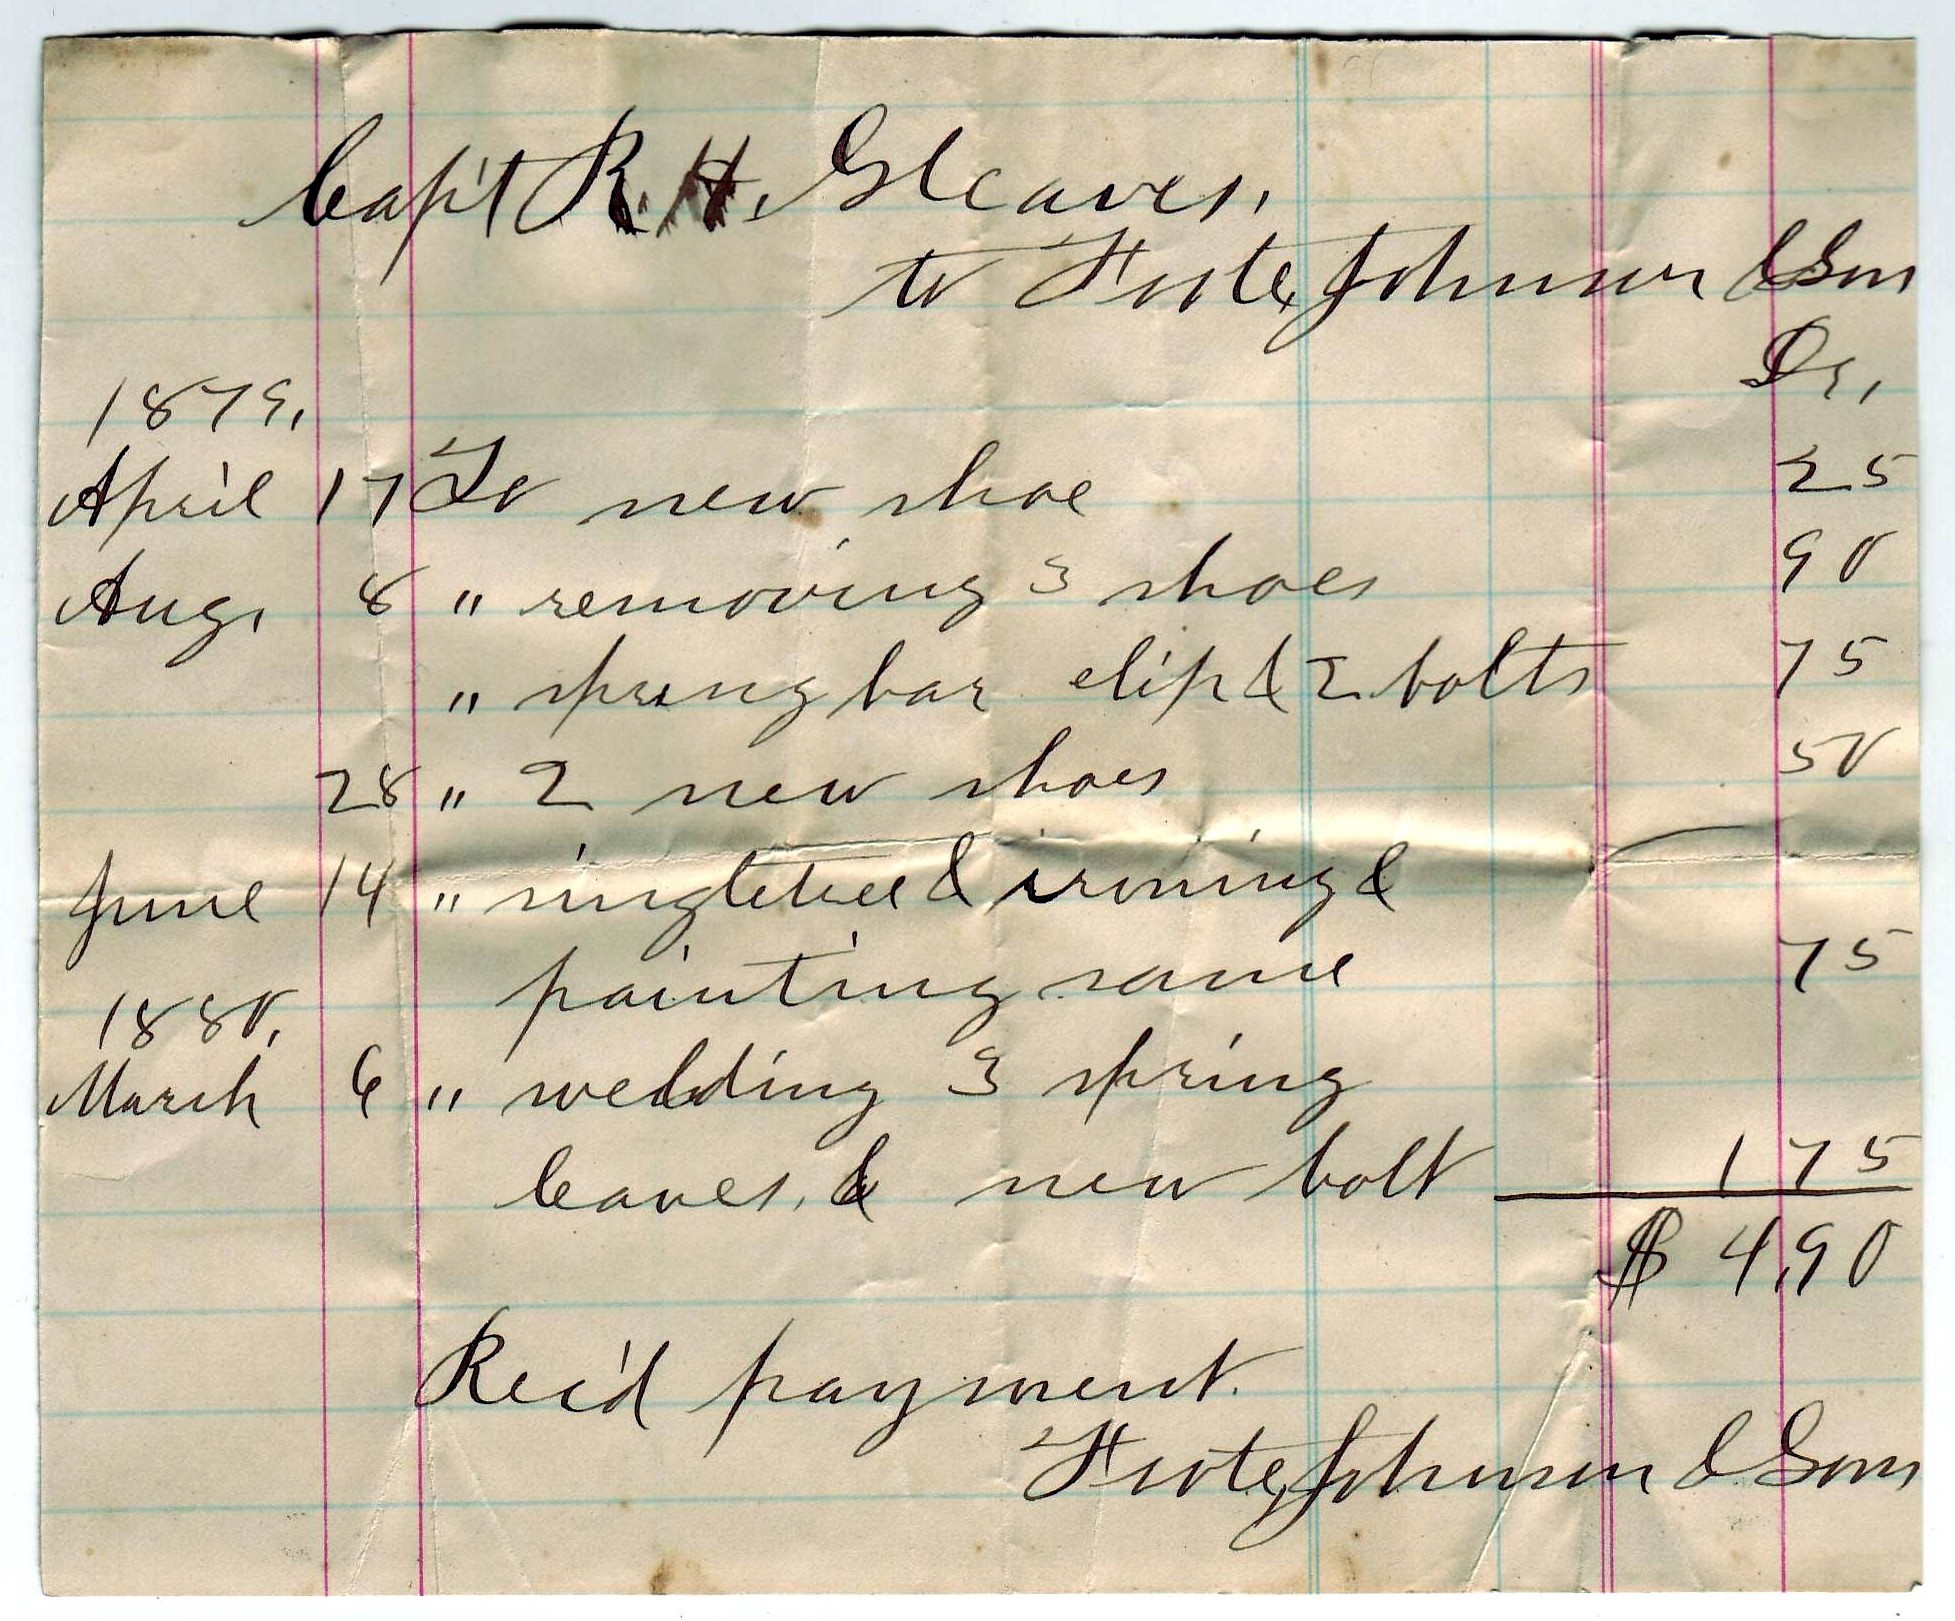 Cap't R. H. Gleaves,
to Foote, Johnson & Son
Dr,
1879,
April 17 To new shoe 25
Aug, 8 " removing 3 shoes 90
" spring bar clip & 2 bolts 75
28 " 2 new shoes 50
June 14 " singletree & ironing &
painting same 75
1880,
March 6 " welding 3 spring
leaves, & new bolt 1 75
$ 4,90
Rec'd payment.
Foote, Johnson & Sons